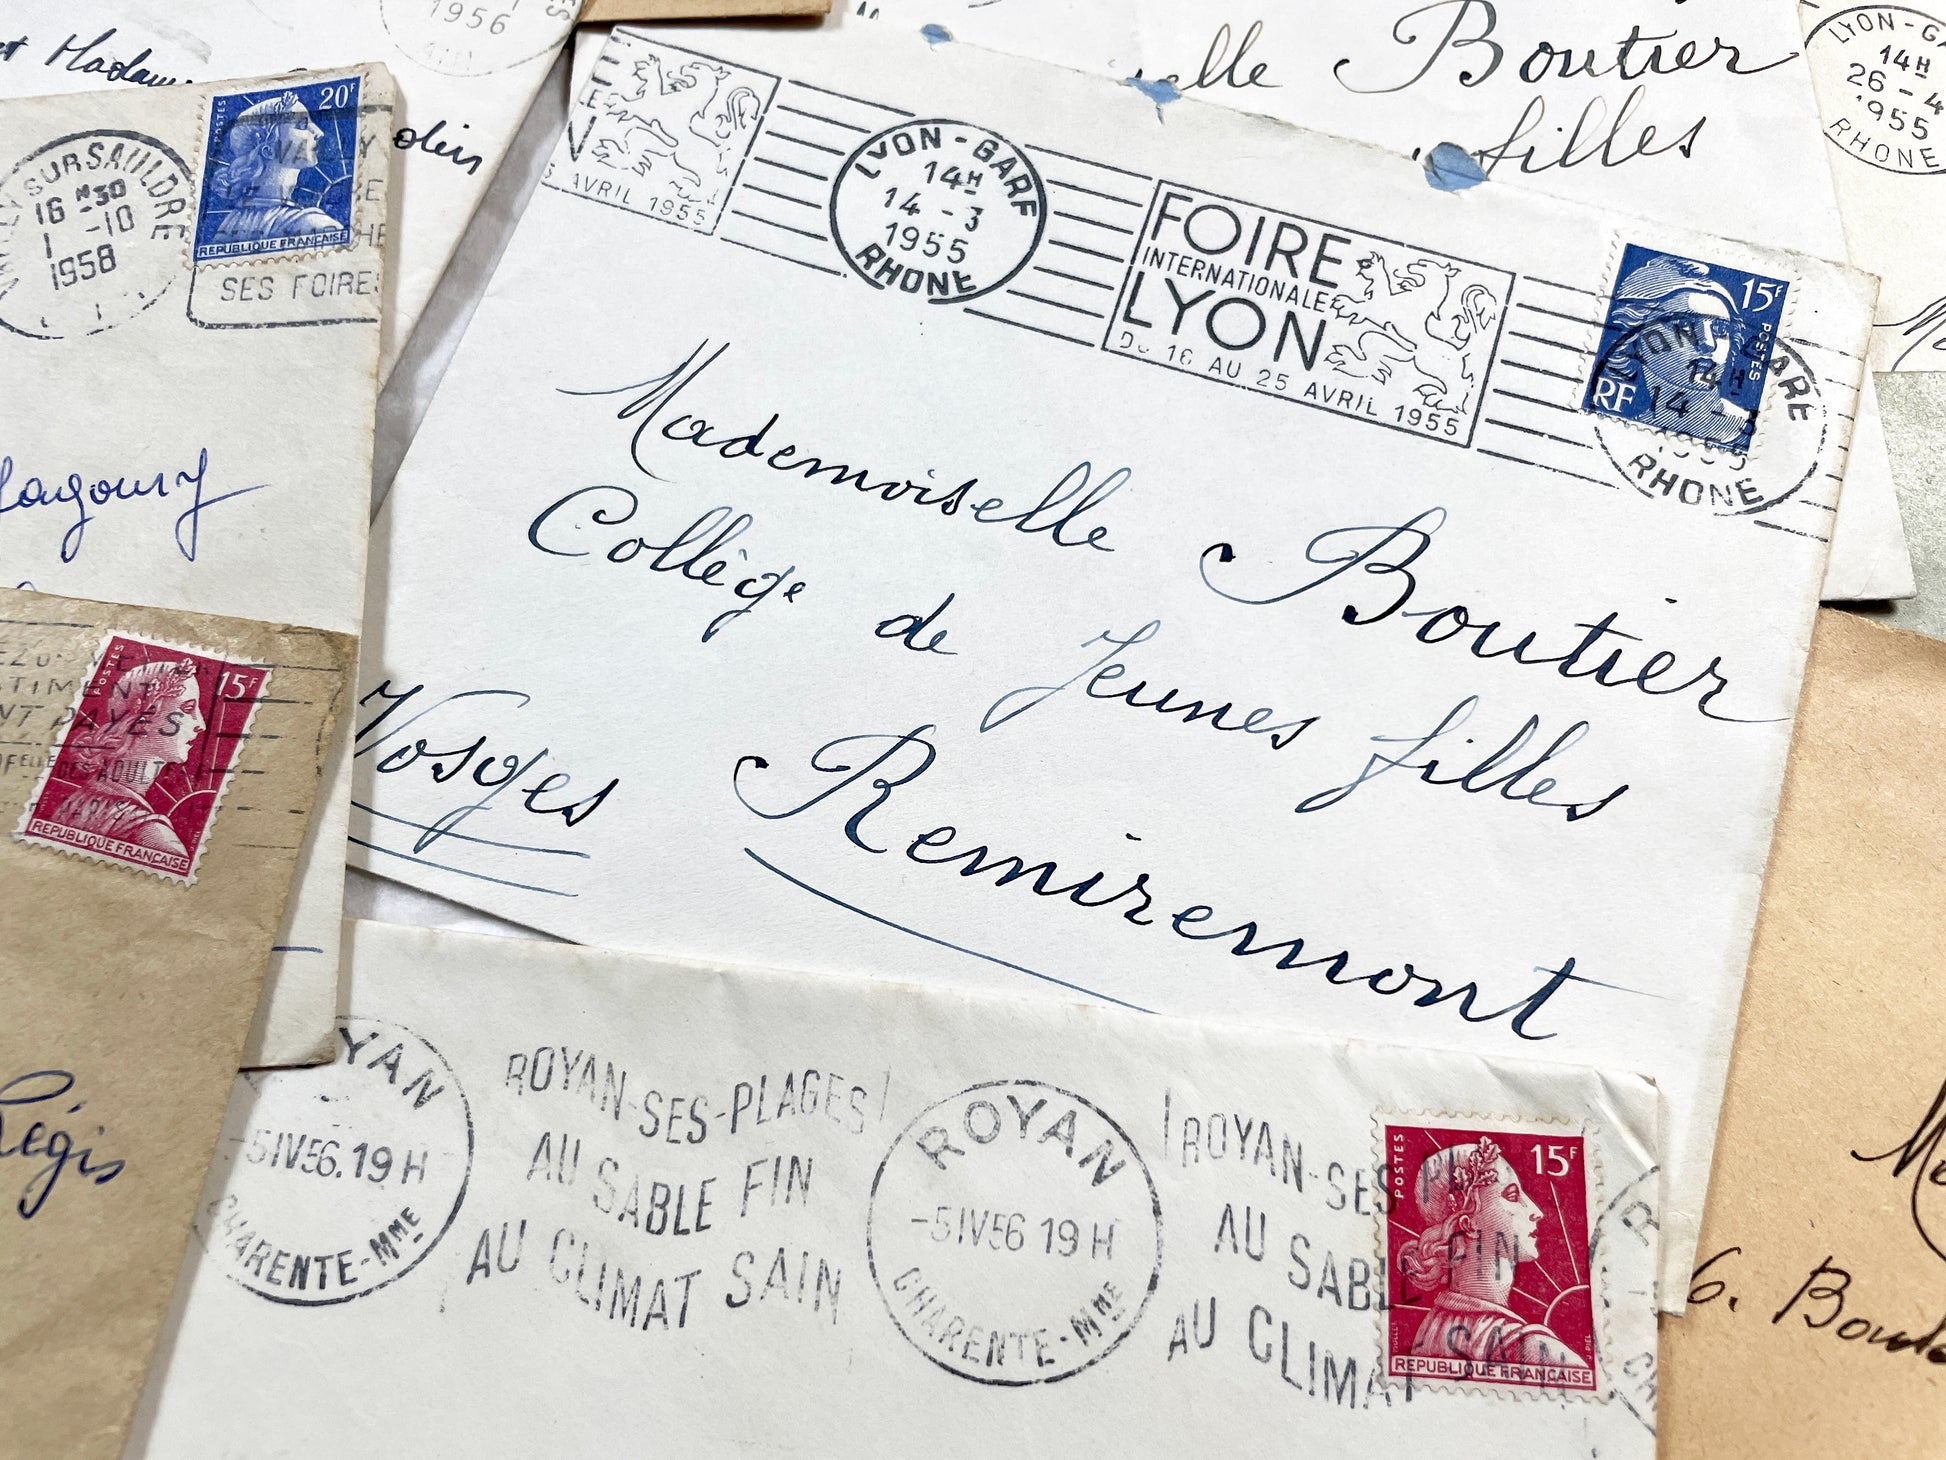 1956
Madame
20F
POSTES
SURSAULDRE
16H30
1 -10
1958
REPUBLIQUE FRANÇAISE
SES FOIRES
AVRIL 1955
LYON-GARE
14H
14-3
1955
RHONE
FOIRE
INTERNATIONALE
LYON
DU 16 AU 25 AVRIL 1955
15F
POSTES
RF
LYON-GARE
14H
14-3
1955
RHONE
elle Boutier
filles
LYON-GA
14H
26-4
1955
RHONE
Mademoiselle Boutier
Collège de Jeunes filles
Vosges Remiremont
15F
POSTES
PAYÉS
DES ADULTES
REPUBLIQUE FRANÇAISE
Régis
YAN
-5IV56.19H
CHARENTE-MME
ROYAN-SES-PLAGES
AU SABLE FIN
AU CLIMAT SAIN
ROYAN
-5IV56 19H
CHARENTE-MME
ROYAN-SES PL
AU SABLE FIN
AU CLIMAT SAIN
15F
POSTES
REPUBLIQUE FRANÇAISE
6. Boule